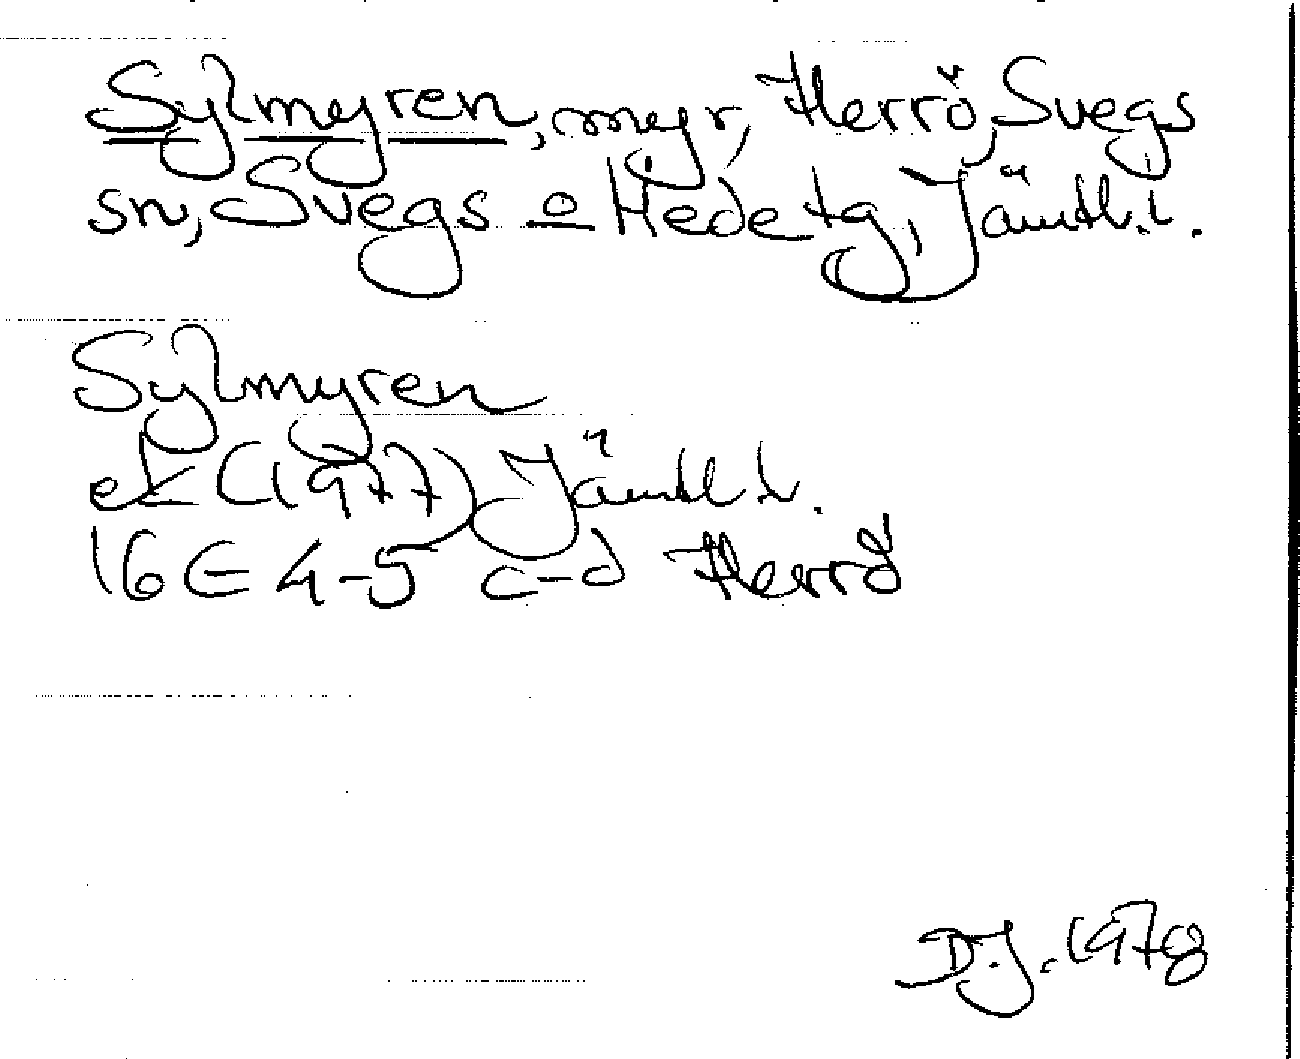 Sylmyren, myr, Herrö, Svegs
sn, Svegs o Hede tg, Jämtl. l.
Sylmyren
ek (1977) Jämtl l.
16 E 4-5 c-d Herrö
D.J. 1978